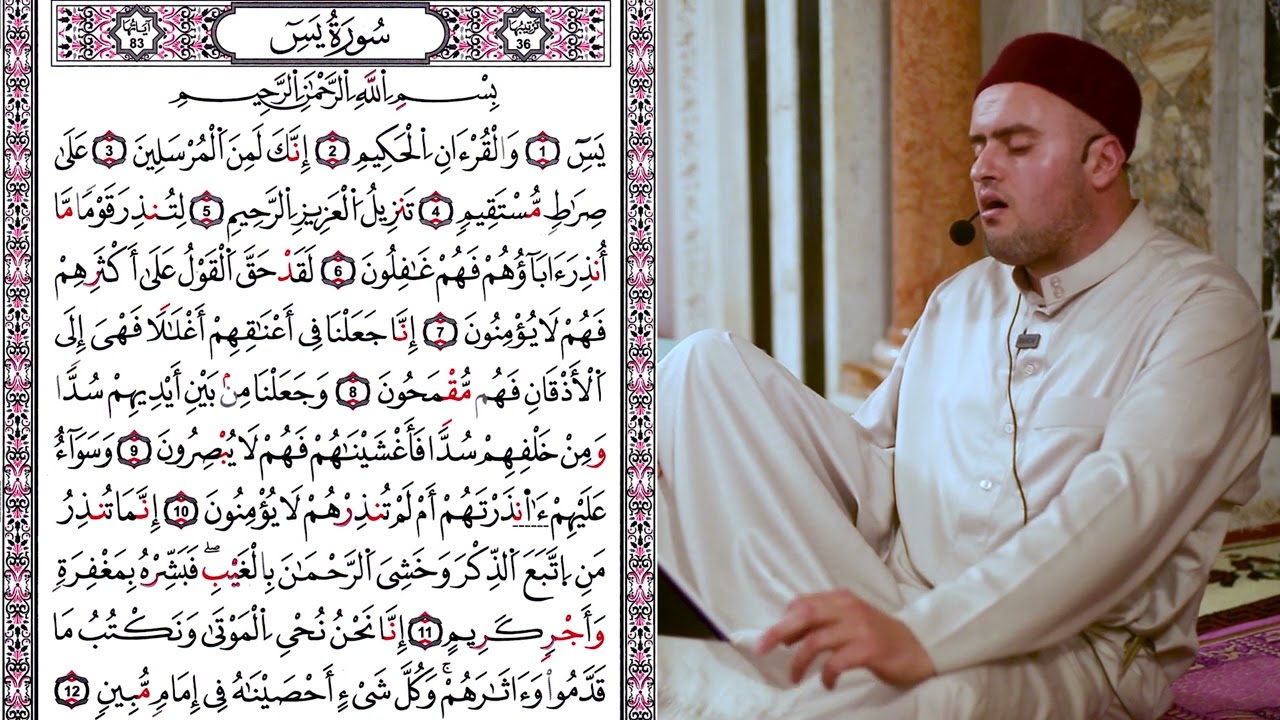 ترتيبها 36
سُورَةُ يَسِٓ
آياتها 83
بِسْمِ اِ۬للَّهِ اِ۬لرَّحْمَٰنِ اِ۬لرَّحِيمِ
يَسِٓ 1 وَالْقُرْءَانِ اِ۬لْحَكِيمِ 2 إِنَّكَ لَمِنَ اَ۬لْمُرْسَلِينَ 3 عَلَىٰ
صِرَٰطٖ مُّسْتَقِيمٖ 4 تَنزِيلُ اُ۬لْعَزِيزِ اِ۬لرَّحِيمِ 5 لِتُنذِرَ قَوْمٗا مَّا
أُنذِرَ ءَابَآؤُهُمْ فَهُمْ غَٰفِلُونَ 6 لَقَدْ حَقَّ اَ۬لْقَوْلُ عَلَىٰ أَكْثَرِهِمْ
فَهُمْ لَا يُؤْمِنُونَ 7 إِنَّا جَعَلْنَا فِي أَعْنَٰقِهِمْ أَغْلَٰلٗا فَهْىَ إِلَى
اَ۬لْأَذْقَانِ فَهُم مُّقْمَحُونَ 8 وَجَعَلْنَا مِنۢ بَيْنِ أَيْدِيهِمْ سُدّٗا
وَمِنْ خَلْفِهِمْ سُدّٗا فَأَغْشَيْنَٰهُمْ فَهُمْ لَا يُبْصِرُونَ 9 وَسَوَآءٌ
عَلَيْهِمْ ءَا۬نذَرْتَهُمْ أَمْ لَمْ تُنذِرْهُمْ لَا يُؤْمِنُونَ 10 إِنَّمَا تُنذِرُ
مَنِ اِ۪تَّبَعَ اَ۬لذِّكْرَ وَخَشِىَ اَ۬لرَّحْمَٰنَ بِالْغَيْبِۖ فَبَشِّرْهُ بِمَغْفِرَةٖ
وَأَجْرٖ كَرِيمٍ 11 إِنَّا نَحْنُ نُحْيِ اِ۬لْمَوْتَىٰ وَنَكْتُبُ مَا
قَدَّمُواْ وَءَاثَٰرَهُمْۚ وَكُلَّ شَيْءٍ أَحْصَيْنَٰهُ فِي إِمَامٖ مُّبِينٖ 12